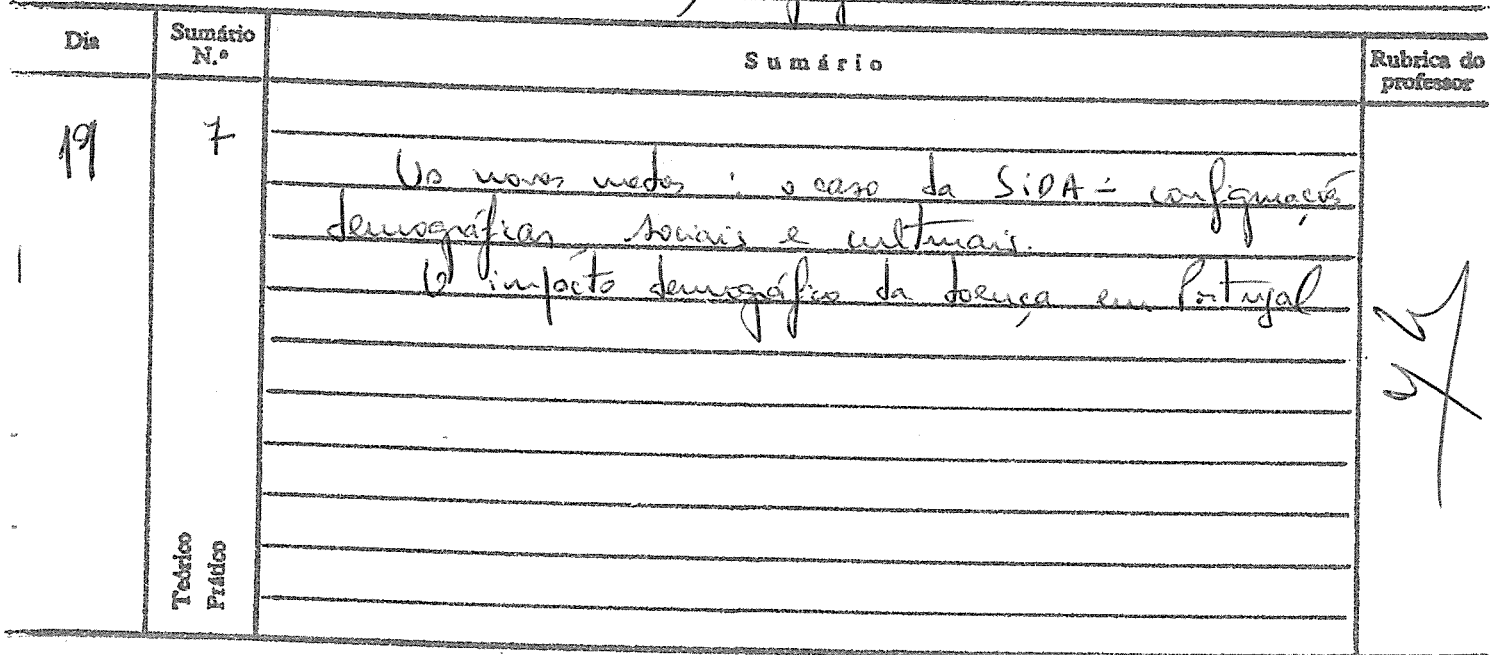 Dia
Sumário N.º
Sumário
Rubrica do professor
19
7
Os novos medos : o caso da SiDA - configurações
demográficas, sociais e culturais.
O impacto demográfico da doença em Portugal
Teórico
Prático